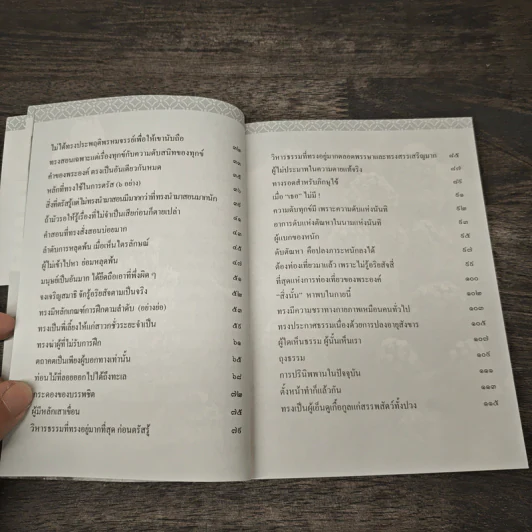 ไม่ได้ทรงประพฤติพรหมจรรย์เพื่อให้เขานับถือ ๓๒
ทรงสอนเฉพาะแต่เรื่องทุกข์กับความดับสนิทของทุกข์ ๓๓
คำของพระองค์ ตรงเป็นอันเดียวกันหมด ๓๕
หลักที่ทรงใช้ในการตรัส (๖ อย่าง) ๓๖
สิ่งที่ตรัสรู้แต่ไม่ทรงนำมาสอนมีมากกว่าที่ทรงนำมาสอนมากนัก ๓๙
ถ้ามัวรอให้รู้เรื่องที่ไม่จำเป็นเสียก่อนก็ตายเปล่า ๔๑
คำสอนที่ทรงสั่งสอนบ่อยมาก ๔๓
ลำดับการหลุดพ้น เมื่อเห็นไตรลักษณ์ ๔๕
ผู้ไม่เข้าไปหา ย่อมหลุดพ้น ๔๘
มนุษย์เป็นอันมาก ได้ยึดถือเอาที่พึ่งผิด ๆ ๕๑
จงเจริญสมาธิ จักรู้อริยสัจตามเป็นจริง ๕๒
ทรงมีหลักเกณฑ์การฝึกตามลำดับ (อย่างย่อ) ๕๓
ทรงเป็นพี่เลี้ยงให้แก่สาวกชั่วระยะจำเป็น ๕๙
ทรงฆ่าผู้ที่ไม่รับการฝึก ๖๑
ตถาคตเป็นเพียงผู้บอกทางเท่านั้น ๖๕
ท่อนไม้ที่ลอยออกไปได้ถึงทะเล ๖๘
กระดองของบรรพชิต ๗๒
ผู้มีหลักเสาเขื่อน ๗๕
วิหารธรรมที่ทรงอยู่มากที่สุด ก่อนตรัสรู้ ๗๙
วิหารธรรมที่ทรงอยู่มากตลอดพรรษาและทรงสรรเสริญมาก ๘๕
ผู้ไม่ประมาทในความตายแท้จริง ๘๗
ทางรอดสำหรับภิกษุไข้ ๘๙
เมื่อ “เธอ” ไม่มี ! ๙๑
ความดับทุกข์มี เพราะความดับแห่งนันทิ ๙๒
อาการดับแห่งตัณหาในนามแห่งนันทิ ๙๓
ผู้แบกของหนัก ๙๕
ดับตัณหา คือปลงภาระหนักลงได้ ๙๗
ต้องท่องเที่ยวมาแล้ว เพราะไม่รู้อริยสัจสี่ ๙๙
ที่สุดแห่งการท่องเที่ยวของพระองค์ ๑๐๐
“สิ่งนั้น” หาพบในกายนี้ ๑๐๒
ทรงมีความชราทางกายภาพเหมือนคนทั่วไป ๑๐๓
ทรงประกาศธรรมเนื่องด้วยการปลงอายุสังขาร ๑๐๕
ผู้ใดเห็นธรรม ผู้นั้นเห็นเรา ๑๐๗
ถุงธรรม ๑๐๙
การปรินิพพานในปัจจุบัน ๑๑๑
ตั้งหน้าทำก็แล้วกัน ๑๑๓
ทรงเป็นผู้เอ็นดูเกื้อกูลแก่สรรพสัตว์ทั้งปวง ๑๑๕